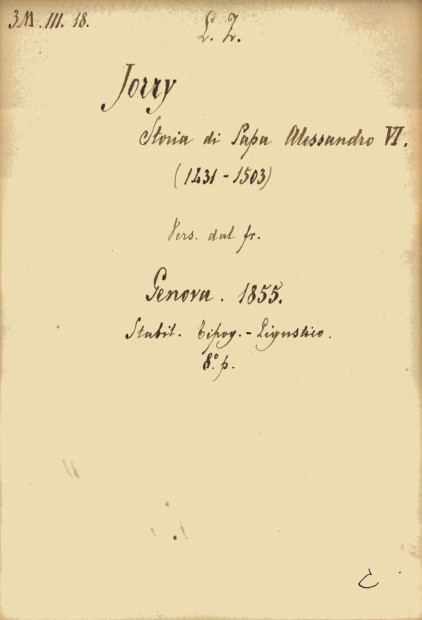 3M.III.18.
L. Z.
Jorry
Storia di Papa Alessandro VI.
(1431-1503)
Vers. dal fr.
Genova. 1855.
Stabil. Tipog.-Ligustico.
8.° p.